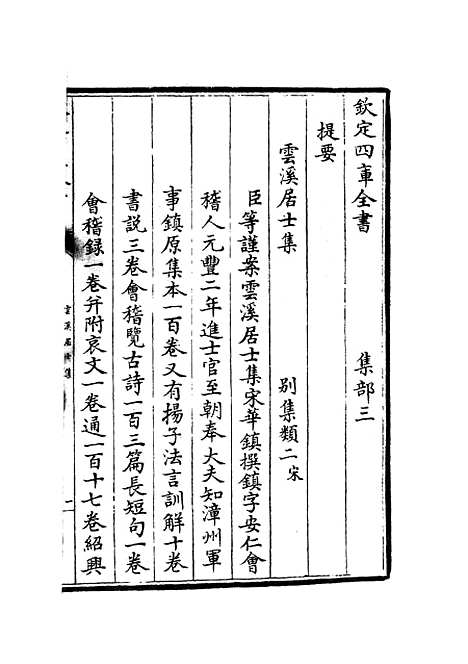 欽定四庫全書　集部三
提要
雲溪居士集　別集類二宋
臣等謹案雲溪居士集宋華鎮撰鎮字安仁會
稽人元豐二年進士官至朝奉大夫知漳州軍
事鎮原集本一百卷又有揚子法言訓解十卷
書説三卷會稽覽古詩一百三篇長短句一卷
會稽録一卷并附哀文一卷通一百十七卷紹興
雲溪居士集